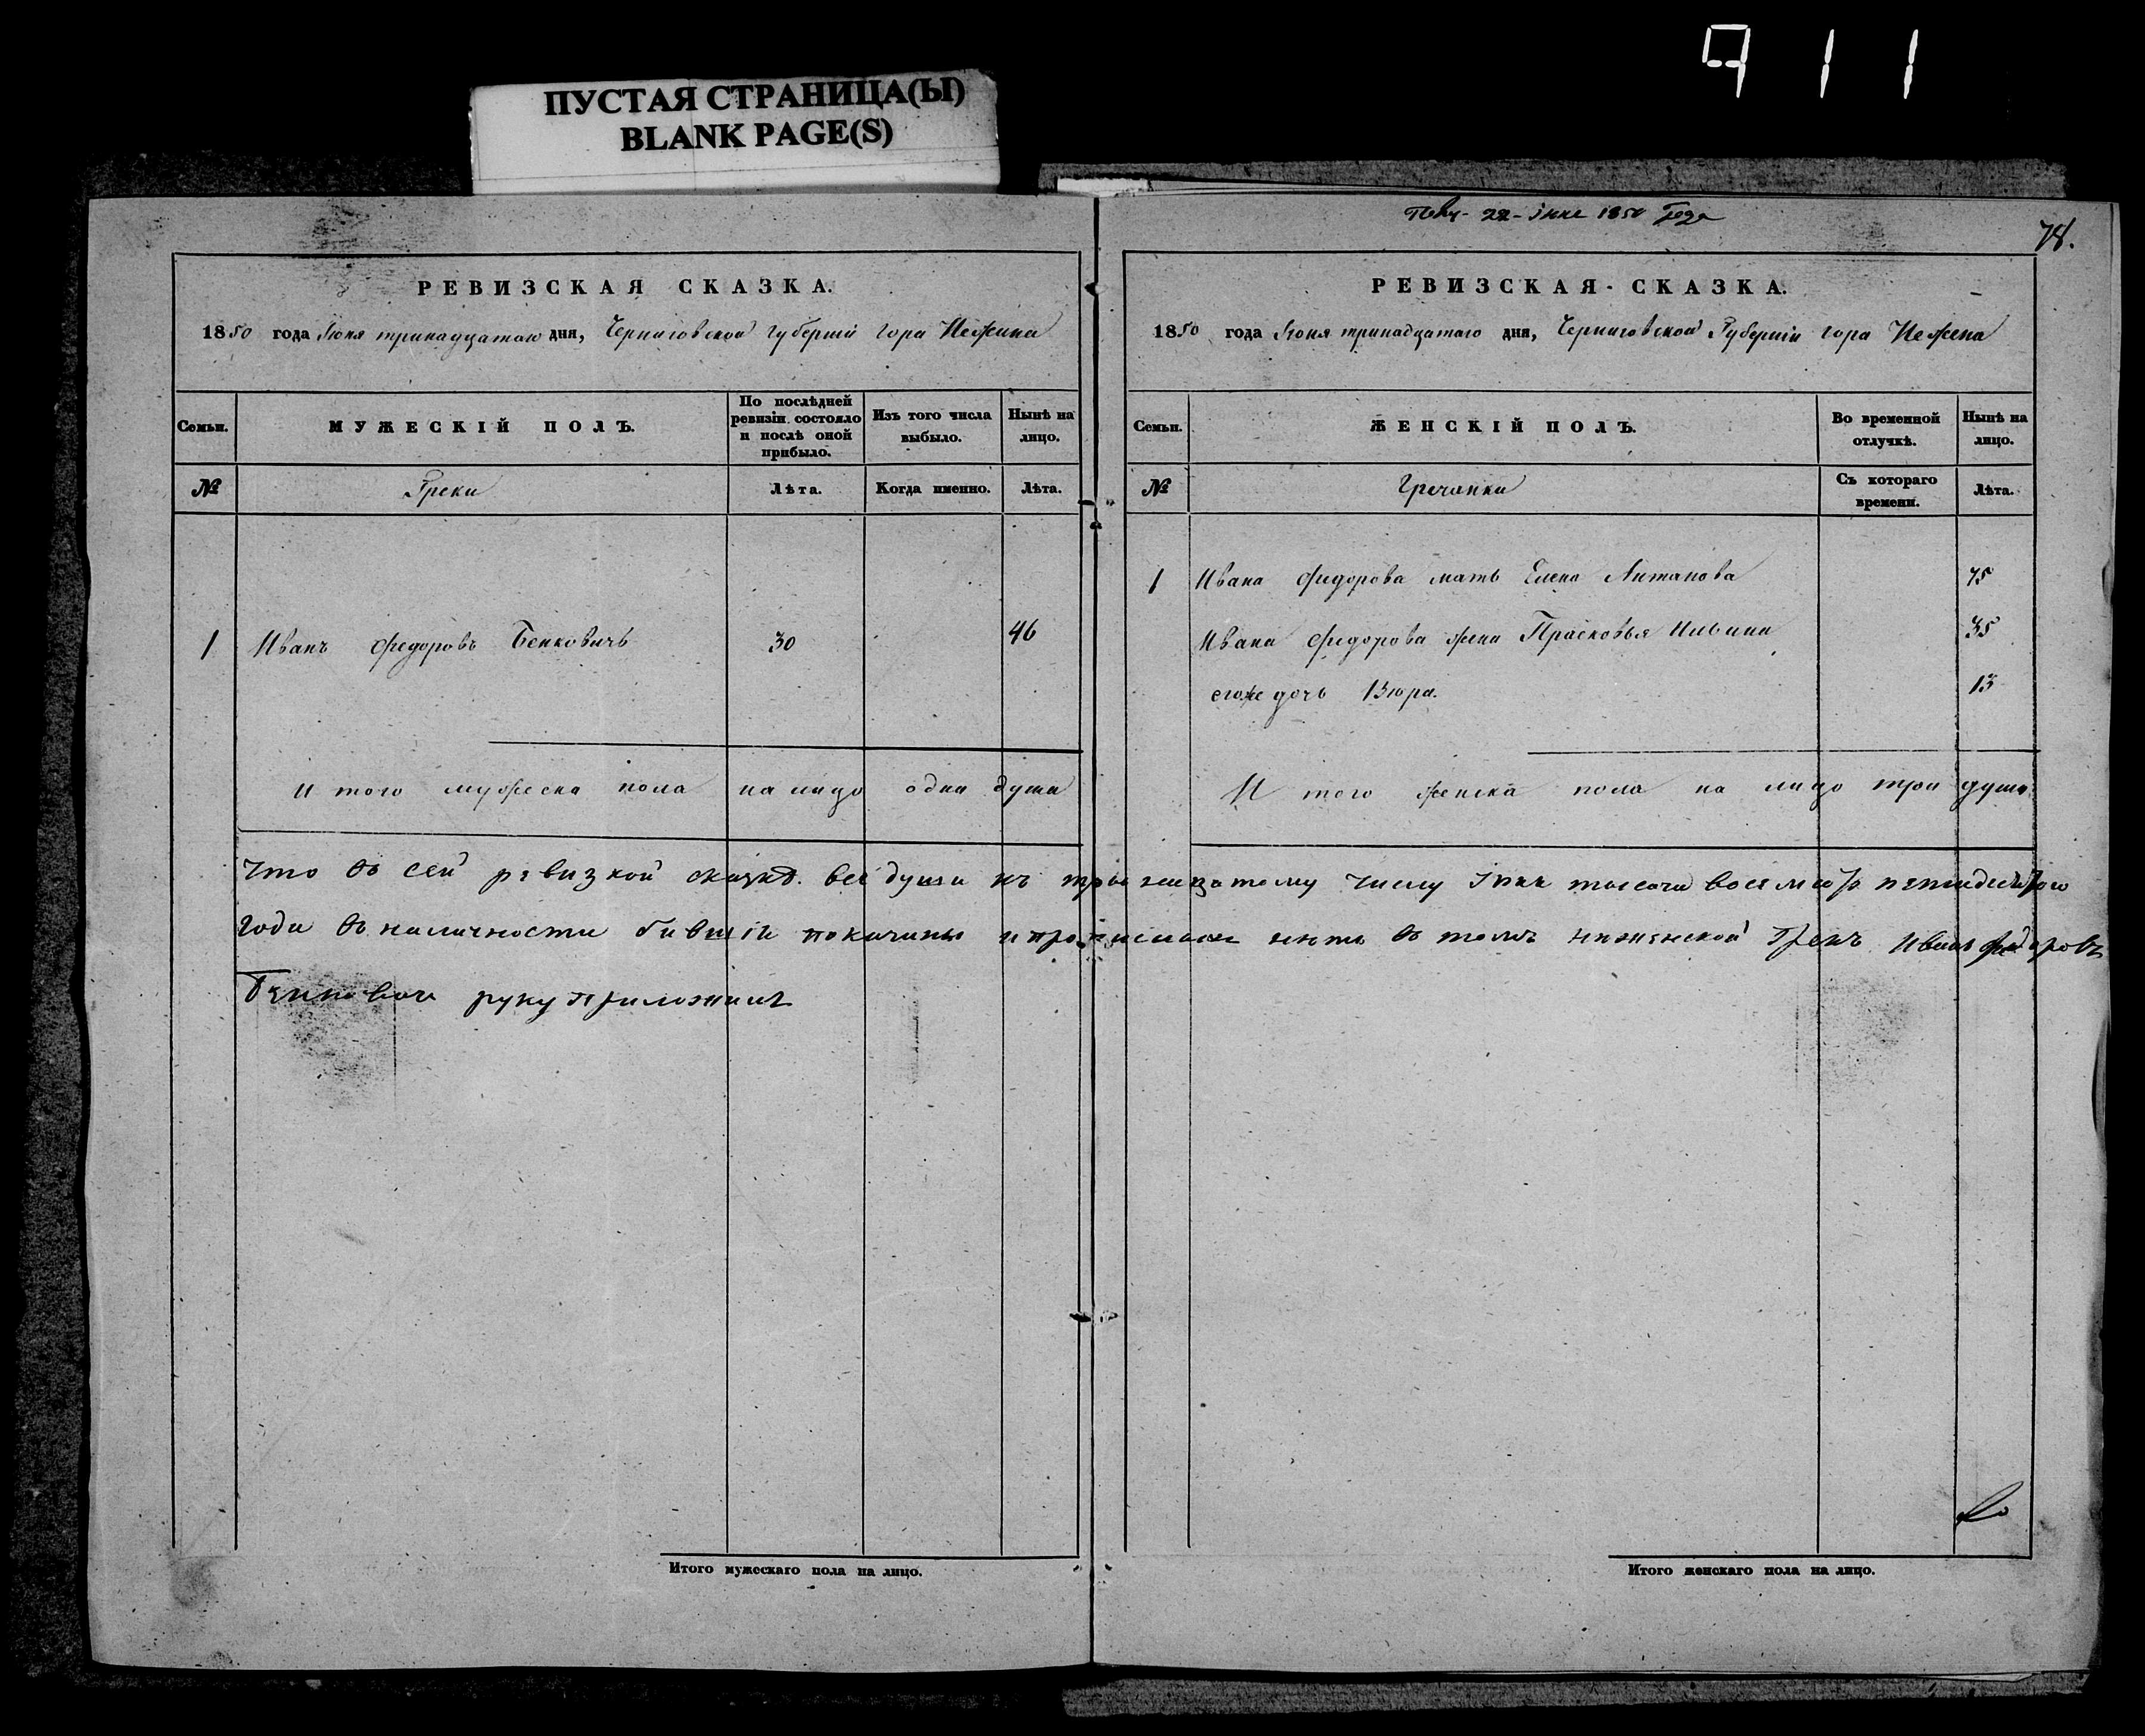 911
ПУСТАЯ СТРАНИЦА(Ы)
BLANK PAGE(S)
22 1850 года
78.
РЕВИЗСКАЯ СКАЗКА.
1850 года Июня тринадцатаго дня, Черниговской Губерніи гора Нежина
Семьи.
МУЖЕСКІЙ ПОЛЪ.
По послѣдней ревизіи состояло и послѣ оной прибыло.
Изъ того числа выбыло.
Нынѣ на лицо.
№
Греки
Лѣта.
Когда именно.
Лѣта.
1 Иванъ Федоровъ Бенковичь 30 46
И того мужеска пола на лицо одна душа
РЕВИЗСКАЯ СКАЗКА.
1850 года Июня тринадцатаго дня, Черниговской Губерніи гора Нежена
Семьи.
ЖЕНСКІЙ ПОЛЪ.
Во временной отлучкѣ.
Нынѣ на лицо.
№
Гречанки
Съ котораго времени.
Лѣта.
1 Ивана Федорова мать Елена 75
Ивана Федорова жена Прасковья Ильина 35
егоже дочь 13
И того женска пола на лицо три души
Что въ сей ревизкой сказке все души къ тринацатому числу тысяча восемсотъ пятидесятого
года въ наличности бывшіи показаны и прописныхъ нетъ въ томъ нежинской Грекъ Иванъ Федоровъ
Бенковичь руку приложилъ
Итого мужескаго пола на лицо.
Итого женскаго пола на лицо.